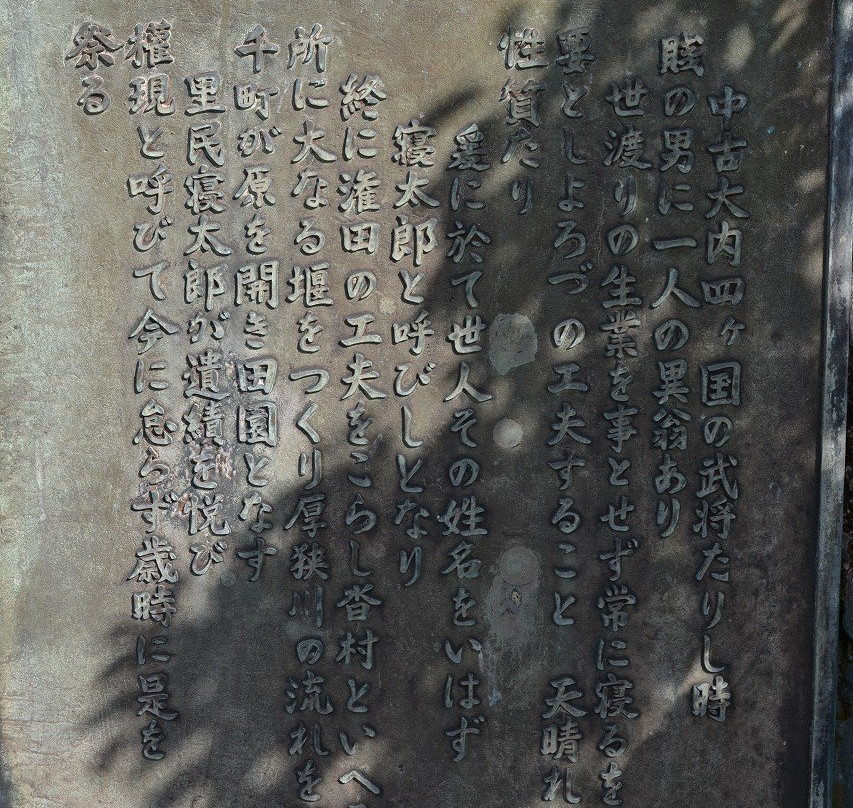 中古大内四ヶ国の武将たりし時
賎の男に一人の異翁あり
世渡りの生業を事とせず常に寝るを
要としよろづの工夫すること　天晴れ
性質たり
爰に於て世人その姓名をいはず
寝太郎と呼びしとなり
終に潅田の工夫をこらし沓村といへ
所に大なる堰をつくり厚狭川の流れを
千町が原を開き田園となす
里民寝太郎が遺績を悦び
權現と呼びて今に怠らず歳時に是を
祭る